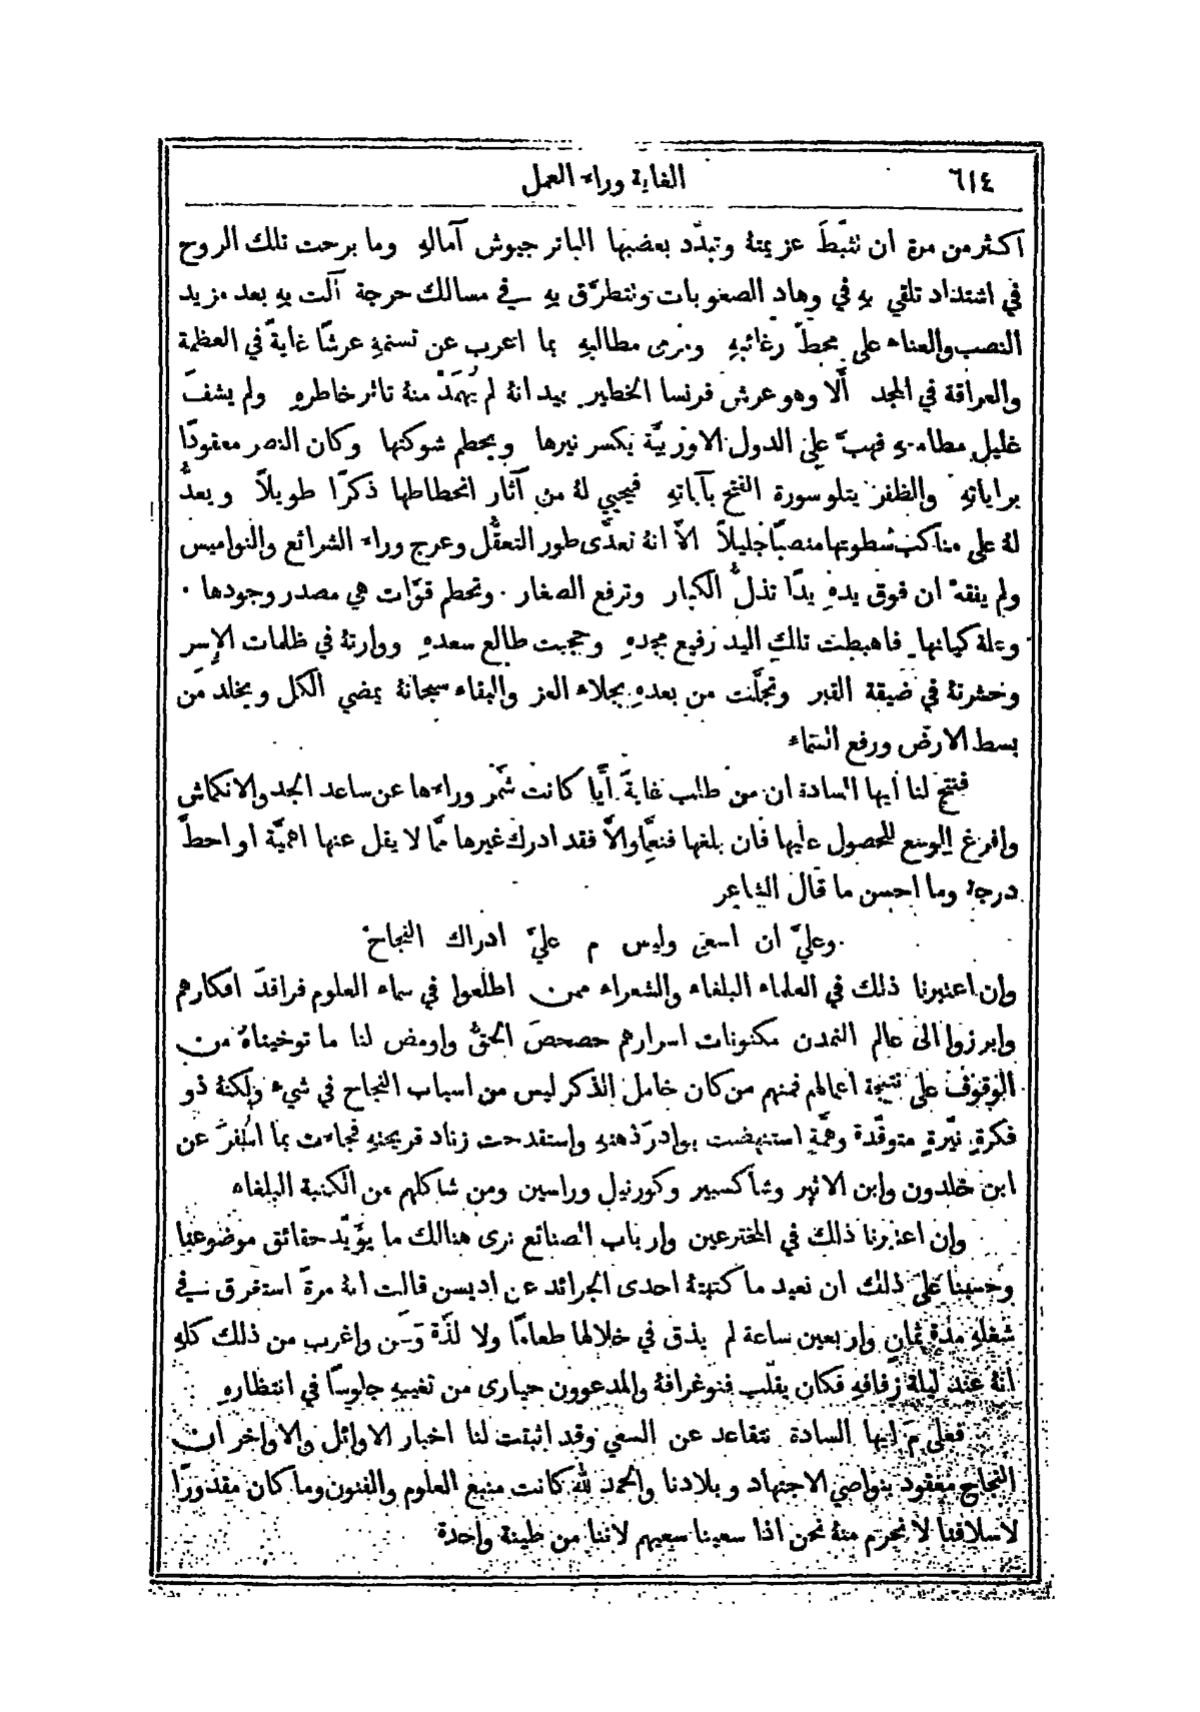 ٦١٤ الغاية وراء العمل
اكثر من مرة أن تثبّط عزيمتهُ وتبدّد بعضبها الباتر جيوش آمالهِ وما برحت تلك الروح
في اشتداد تلقي بهِ في وهاد الصعوبات وتتطرّق بهِ في مسالك حرجة آلت بهِ بعد مزيد
النصب والعناء على محطّ رغائبهِ ومرمى مطالبهِ بما اعرب عن تسنمهِ عرشًا غايةً في العظمة
والعراقة في المجد ألا وهو عرش فرنسا الخطير بيد انهُ لم يُهمَد منهُ ثائر خاطرهِ ولم يشفَ
غليل مطامعهِ فهبَّ على الدول الاوربيَّة يكسر نيرها ويحطم شوكتها وكان النصر معقودًا
براياتهِ والظفر يتلو سورة الفتح بآياتهِ فيحيي لهُ من آثار انحطاطها ذكرًا طويلاً ويعدُّ
لهُ على مناكب سطوتها منصبًا جليلاً الاَّ انهُ تعدَّى طور التعقُّل وعرج وراء الشرائع والنواميس
ولم يفقه ان فوق يدهِ يدًا تذلُّ الكبار وترفع الصغار . وتحطم قوَّات هي مصدر وجودها .
وعلة كيانها . فاهبطت تلك اليد رفيع مجدهِ وحجبت طالع سعدهِ ووارتهُ في ظلمات الاسر
وحشرتهُ في ضيقة القبر وتجلَّت من بعدهِ بجلاء العز والبقاء سبحانهُ يمضي الكل ويخلد من
بسط الارض ورفع السماء
فنتج لنا أيها السادة ان من طلب غايةً أيًّا كانت شمَّر وراءها عن ساعد الجد والانكماش
وافرغ الوسع للحصول عليها فان بلغها فنعمَّا والاَّ فقد ادرك غيرها ممَّا لا يقل عنها اهميَّة او احطَّ
درجة وما احسن ما قال الشاعر
وعليَّ ان اسعى وليس م عليَّ ادراك النجاح
وإن اعتبرنا ذلك في العلماء البلغاء والشعراء ممن اطلعوا في سماء العلوم فراقدَ افكارهم
وابرزوا الى عالم التمدن مكنونات اسرارهم حصحصَ الحقُّ واومض لنا ما توخيناهُ من
الوقوف على نتيجة اعمالهم فمنهم من كان خامل الذكر ليس من اسباب النجاح في شيء ولكنهُ ذو
فكرةٍ نيّرةٍ متوقّدة وهمَّةٍ استنهضت بوادرَ ذهنهِ واستقدحت زناد قريحتهِ فجاءت بما اسفر عن
ابن خلدون وابن الاثير وشاكسبير وكورنيل وراسين ومن شاكلهم من الكتبة البلغاء
وإن اعتبرنا ذلك في المخترعين وارباب الصنائع نرى هنالك ما يؤيّد حقائق موضوعنا
وحسبنا على ذلك ان نعيد ما كتبتهُ احدى الجرائد عن اديسن قالت انهُ مرةً استغرق في
شغلهِ مدة ثمانٍ واربعين ساعة لم يذق في خلالها طعامًا ولا لذَّة وَسَن واغرب من ذلك كلهِ
انهُ عند ليلة زفافهِ فكان يقلّب فنوغرافهُ والمدعوون حيارى من تغيبهِ جلوسًا في انتظارهِ
فعلى مَ ايها السادة نتقاعد عن السعي وقد اثبتت لنا اخبار الاوائل والاواخر ان
النجاح معقود بنواصي الاجتهاد وبلادنا والحمد لله كانت منبع العلوم والفنون وما كان مقدورًا
لاسلافنا لا نحرم منهُ نحن اذا سعينا سعيهم لاننا من طينة واحدة